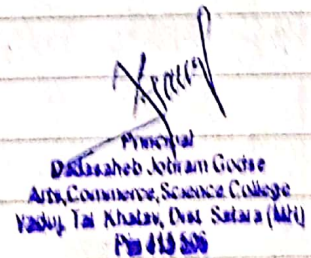 Principal
Dadasaheb Jotiram Godse
Arts, Commerce, Science College
Vaduj, Tal Khatav, Dist Satara (MH)
Pin 415 506